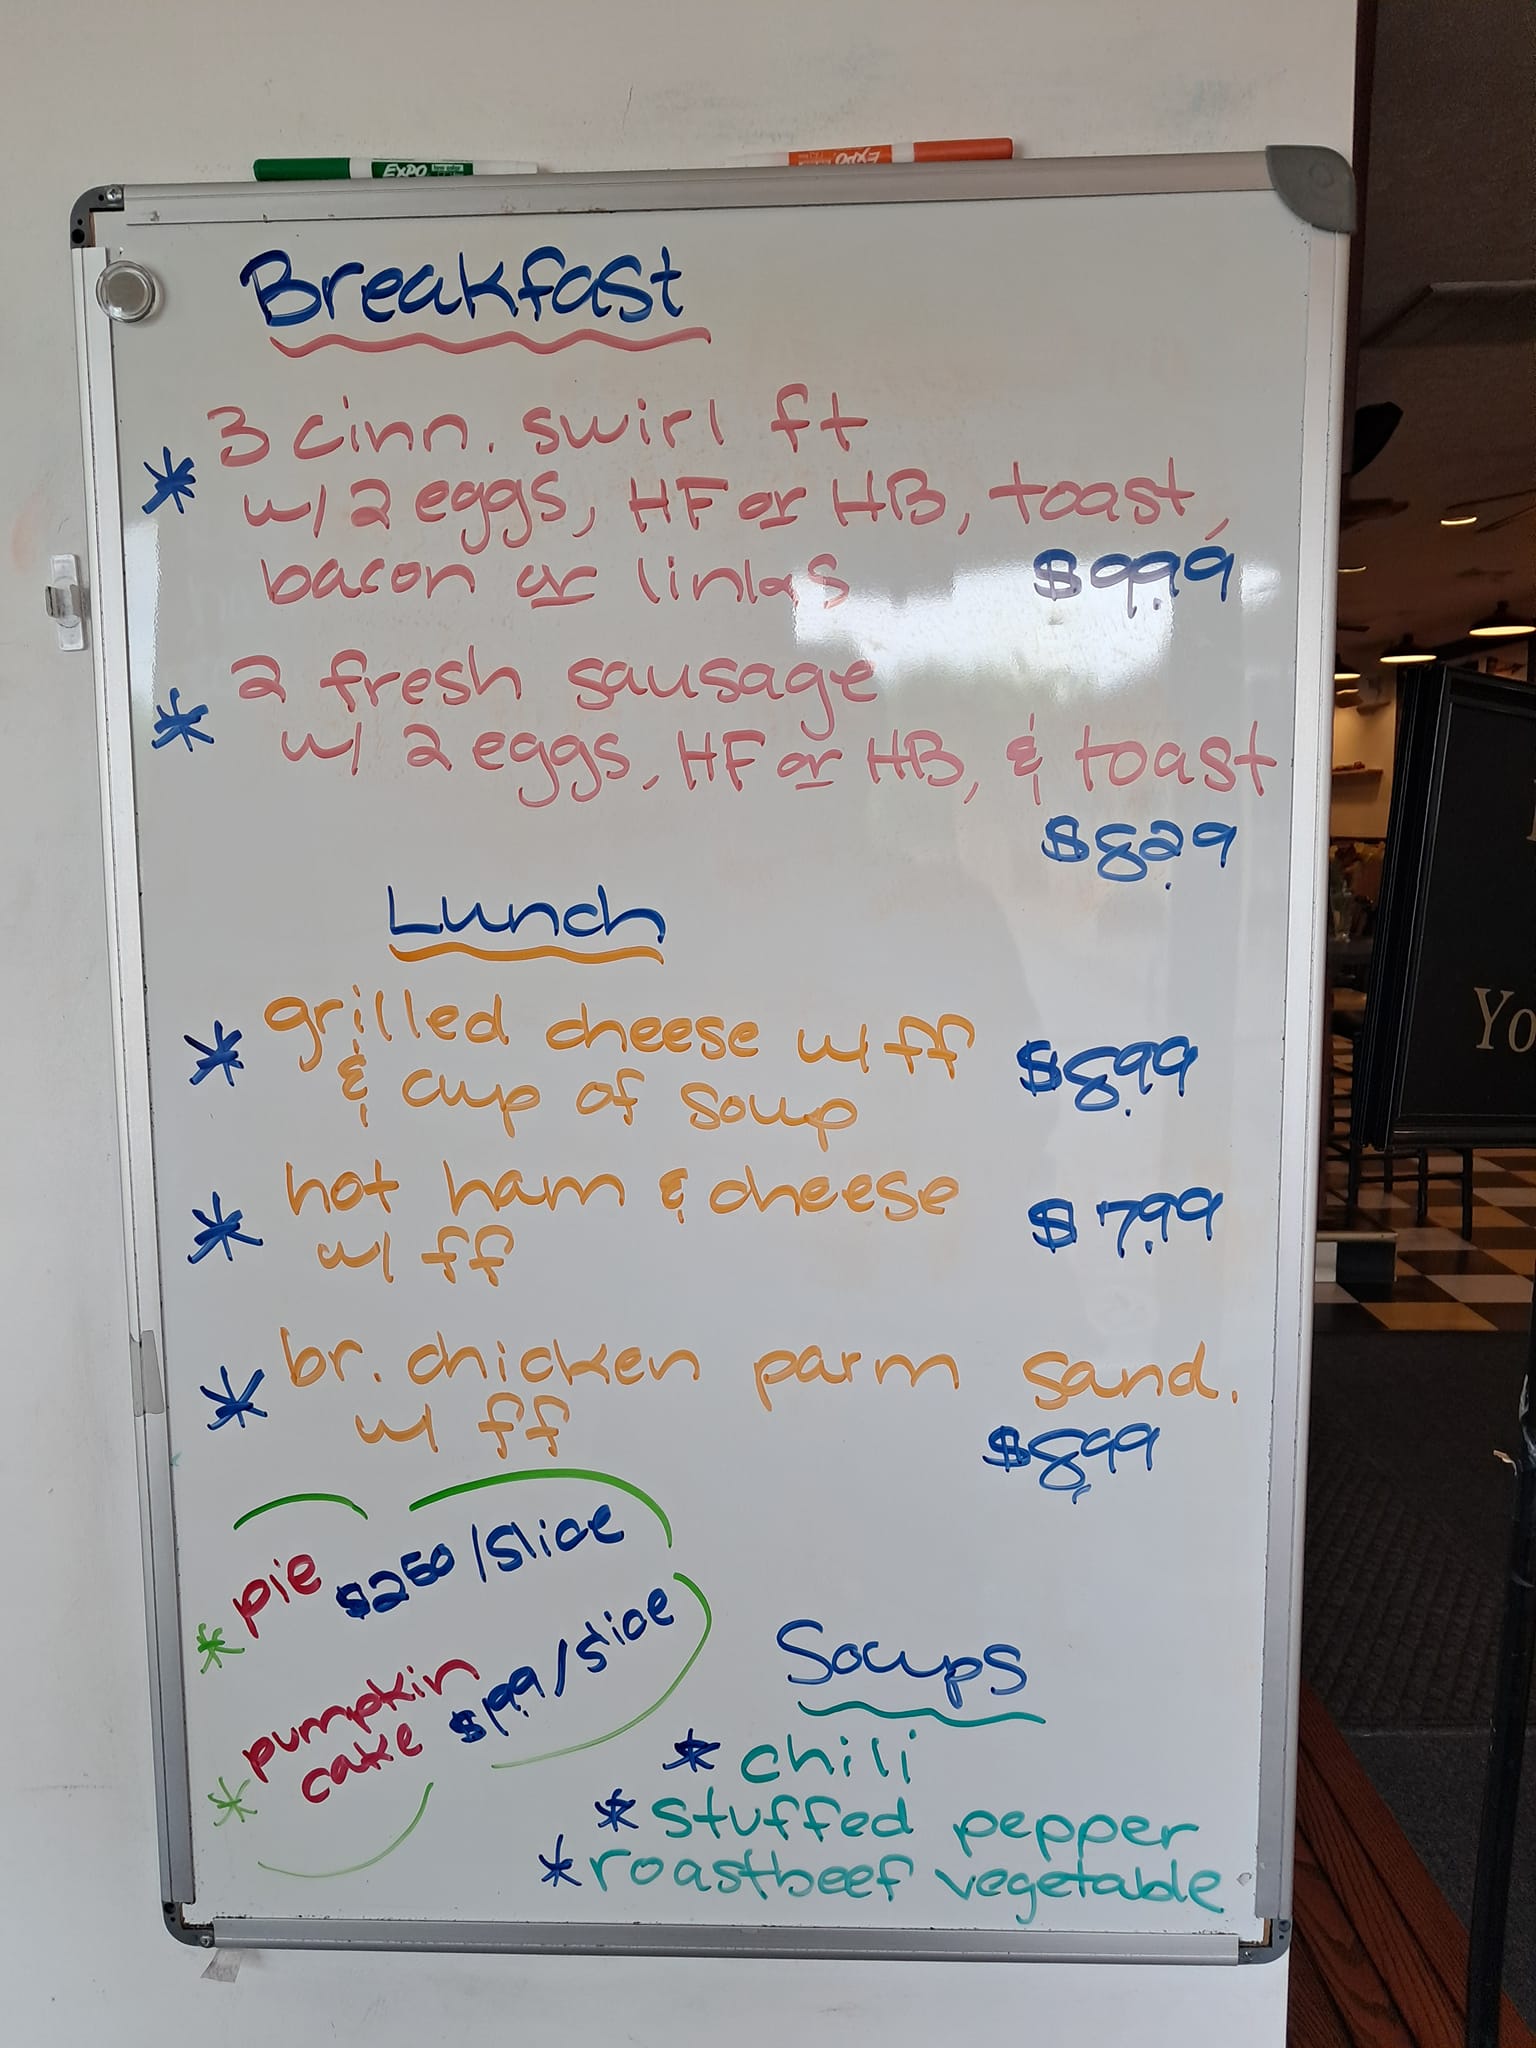 EXPO
EXPO
Breakfast
* 3 cinn. swirl ft
w/ 2 eggs, HF or HB, toast,
bacon or links $9.99
* 2 fresh sausage
w/ 2 eggs, HF or HB, & toast
$8.29
Lunch
* grilled cheese w/ ff $8.99
& cup of soup
* hot ham & cheese $7.99
w/ ff
* br. chicken parm sand.
w/ ff $8.99
* pie $2.50/slice
* pumpkin
cake $1.99/slice
Soups
* chili
* stuffed pepper
* roastbeef vegetable
Yo